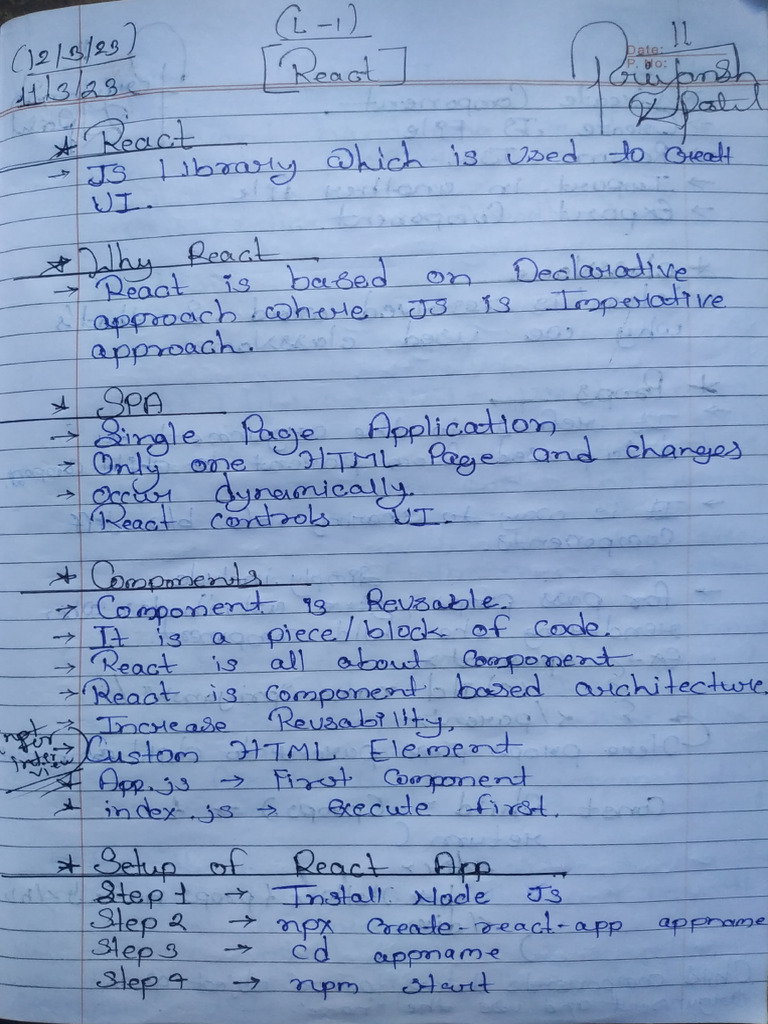 (L-1)
(12/3/23)
11/3/23
[React]
Date: 11
P. No:
* React
→ JS Library which is used to create
UI.
* Why React
→ React is based on Declarative
approach where JS is Imperative
approach.
* SPA
→ Single Page Application
→ Only one HTML Page and changes
→ occur dynamically.
React controls UI.
* Components
→ Component is Reusable.
→ It is a piece/block of code.
→ React is all about component
→ React is component based architecture.
→ Increase Reusability.
→ Custom HTML Element
* App.js → First Component
* index.js → execute first.
* Setup of React App
Step 1 → Install Node JS
Step 2 → npx create-react-app appname
Step 3 → cd appname
Step 4 → npm start